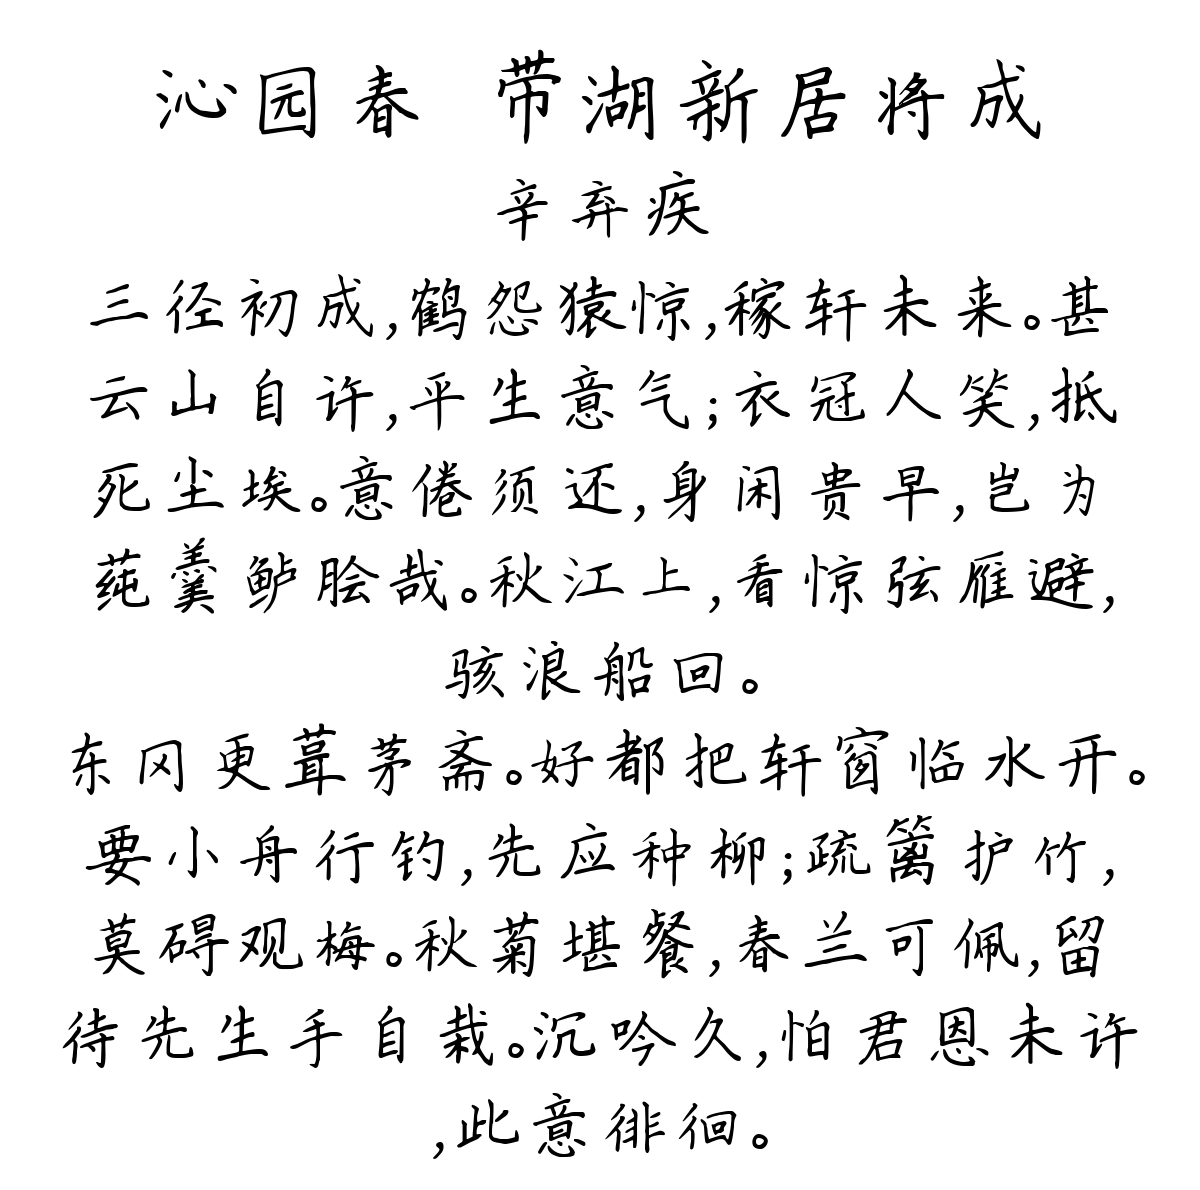 沁园春 带湖新居将成
辛弃疾
三径初成,鹤怨猿惊,稼轩未来。甚
云山自许,平生意气;衣冠人笑,抵
死尘埃。意倦须还,身闲贵早,岂为
莼羹鲈脍哉。秋江上,看惊弦雁避,
骇浪船回。
东冈更葺茅斋。好都把轩窗临水开。
要小舟行钓,先应种柳;疏篱护竹,
莫碍观梅。秋菊堪餐,春兰可佩,留
待先生手自栽。沉吟久,怕君恩未许
,此意徘徊。